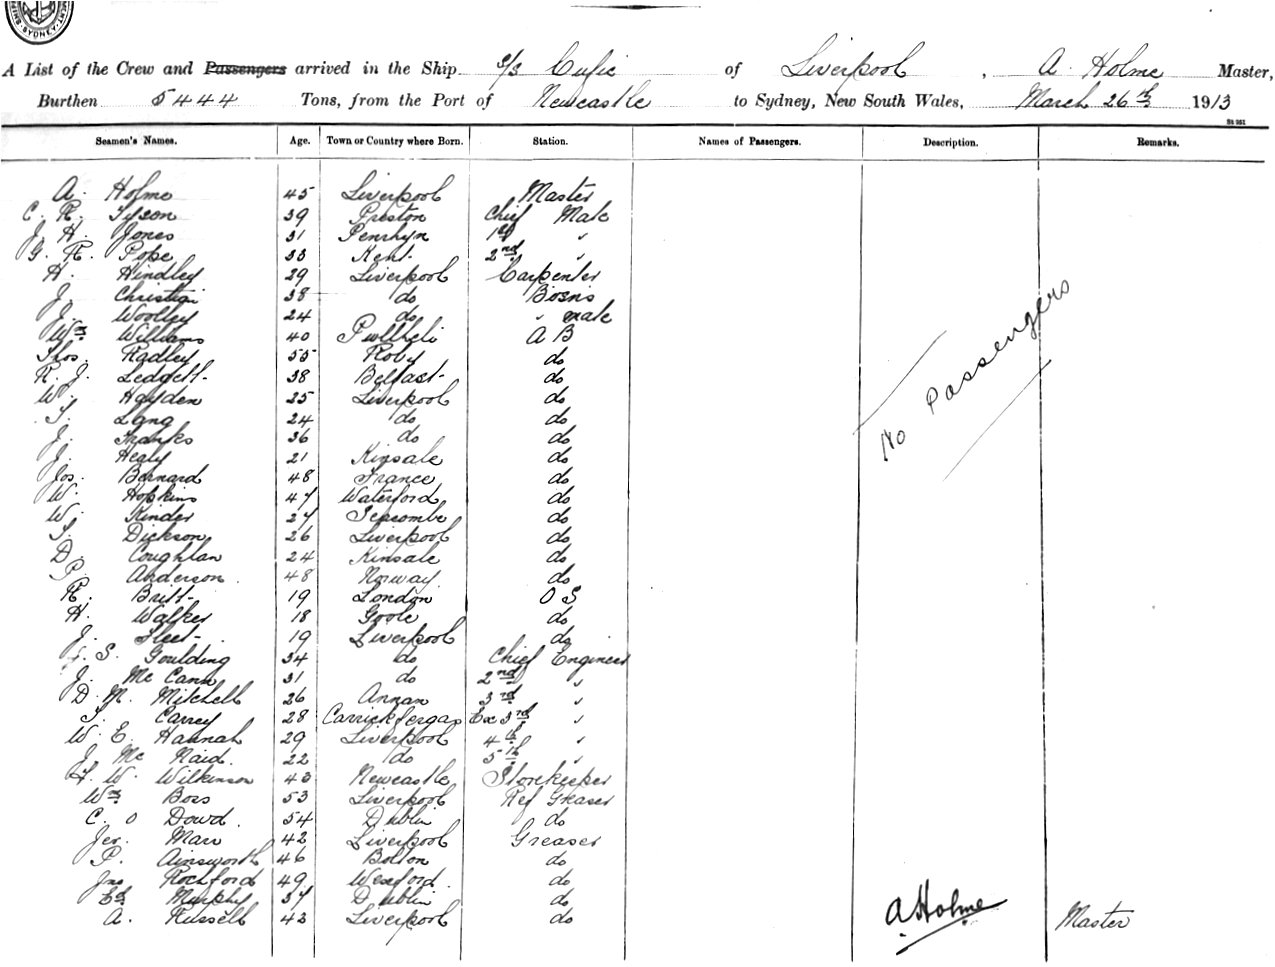 SYDNEY
A List of the Crew and Passengers arrived in the Ship S/S Cufic of Liverpool, A. Holme Master,
Burthen 5444 Tons, from the Port of Newcastle to Sydney, New South Wales, March 26th 1913
St 951
Seamen's Names. Age. Town or Country where Born. Station. Names of Passengers. Description. Remarks.
A. Holme 45 Liverpool Master
C. R. Tyson 39 Preston Chief Mate
J. H. Jones 31 Penrhyn 1st "
G. R. Pope 33 Kent 2nd "
H. Hindley 29 Liverpool Carpenter
J. Christian 38 do Bosns
J. Woolley 24 do " mate
Wm Williams 40 Pwllheli A B
Thos. Radley 55 Roby do
R. J. Ledgett 38 Belfast do
W. Hayden 25 Liverpool do
T. Lang 24 do do
J. Franks 36 do do
J. Healy 21 Kinsale do
Jos. Bernard 48 France do
W. Hopkins 47 Waterford do
W. Kinder 27 Seacombe do
T. Dickson 26 Liverpool do
D. Coughlan 24 Kinsale do
P. Anderson 48 Norway do
R. Britt 19 London O S
H. Walker 18 Goole do
J. Fleet 19 Liverpool do
S. Goulding 34 do Chief Engineer
J. Mc Cann 31 do 2nd "
D. M. Mitchell 26 Annan 3rd "
T. Carrey 28 Carrickfergas Ex 3rd "
W. E. Hannah 29 Liverpool 4th "
J. Mc Naid 22 do 5th "
W. Wilkinson 43 Newcastle Storekeeper
Wm Boss 53 Liverpool Ref Greaser
C. O Dowd 54 Dublin do
Jer. Marr 42 Liverpool Greaser
P. Ainsworth 46 Bolton do
Jno Rochford 49 Wexford do
Ed Murphy 37 Dublin do
A. Russell 43 Liverpool do
No Passengers
A Holme Master